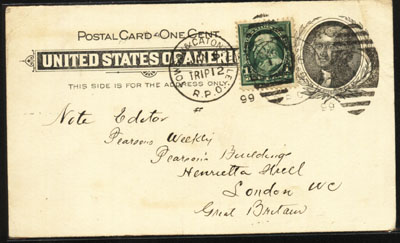 POSTAL CARD • ONE CENT.
UNITED STATES OF AMERICA
THIS SIDE IS FOR THE ADDRESS ONLY.
CATON
TRIP 12
R.P.O.
99
1
Note Editor
Pearsons Weekly
Pearson's Buildings
Henrietta
London WC
Great Britain